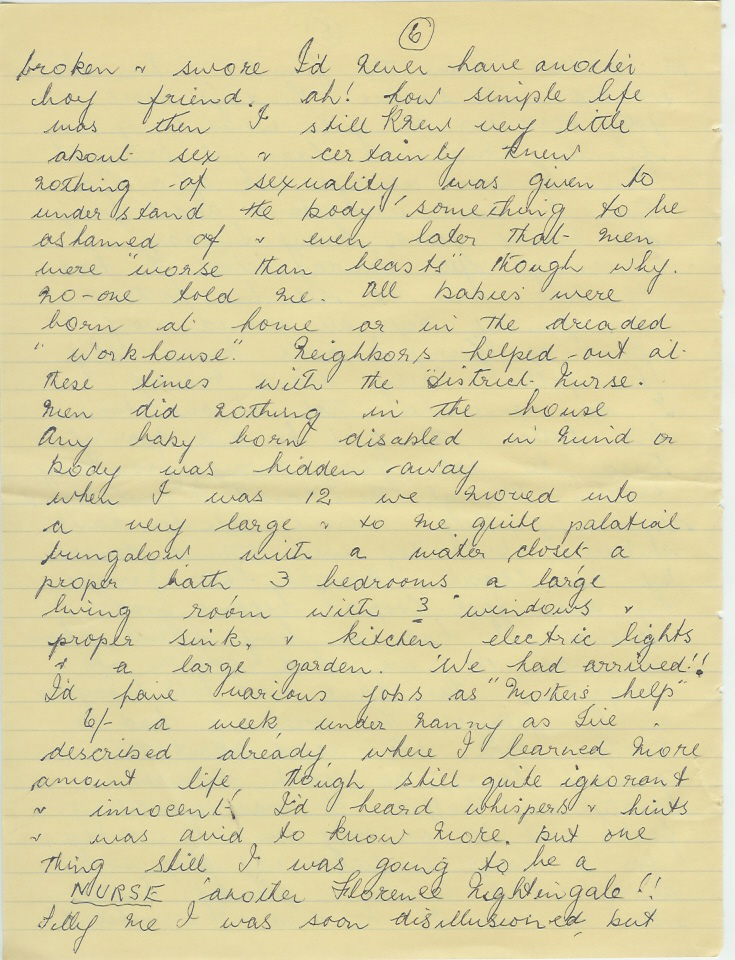 6
broken & swore I'd never have another
boy friend. ah! how simple life
was then I still knew very little
about sex & certainly knew
nothing of sexuality was given to
understand the body something to be
ashamed of & even later that men
were "worse than beasts" though why.
no-one told me. All babies were
born at home or in the dreaded
"workhouse". Neighbors helped out at
these times with the District Nurse.
Men did nothing in the house
Any baby born disabled in mind or
body was hidden away
when I was 12 we moved into
a very large & to me quite palatial
bungalow with a water closet a
proper bath 3 bedrooms a large
living room with 3 windows &
proper sink, & kitchen electric lights
& a large garden. We had arrived!!
I'd have various jobs as "Mothers help"
6/- a week under nanny as I've
described already where I learned more
amount life though still quite ignorant
& innocent. I'd heard whispers & hints
& was avid to know more. but one
thing still I was going to be a
NURSE another Florence Nightingale!!
Silly me I was soon disillusioned, but